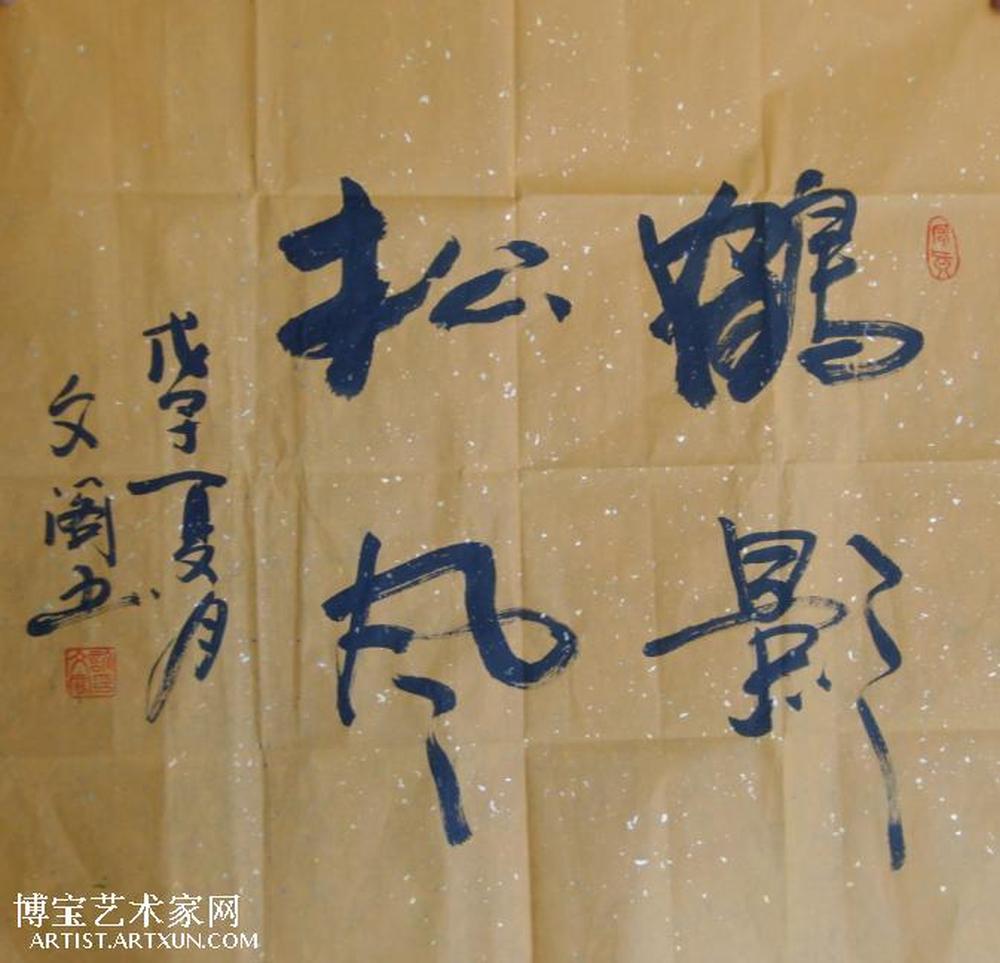 鹤影
松风
戊子夏月
文阁书
博宝艺术家网
ARTIST.ARTXUN.COM